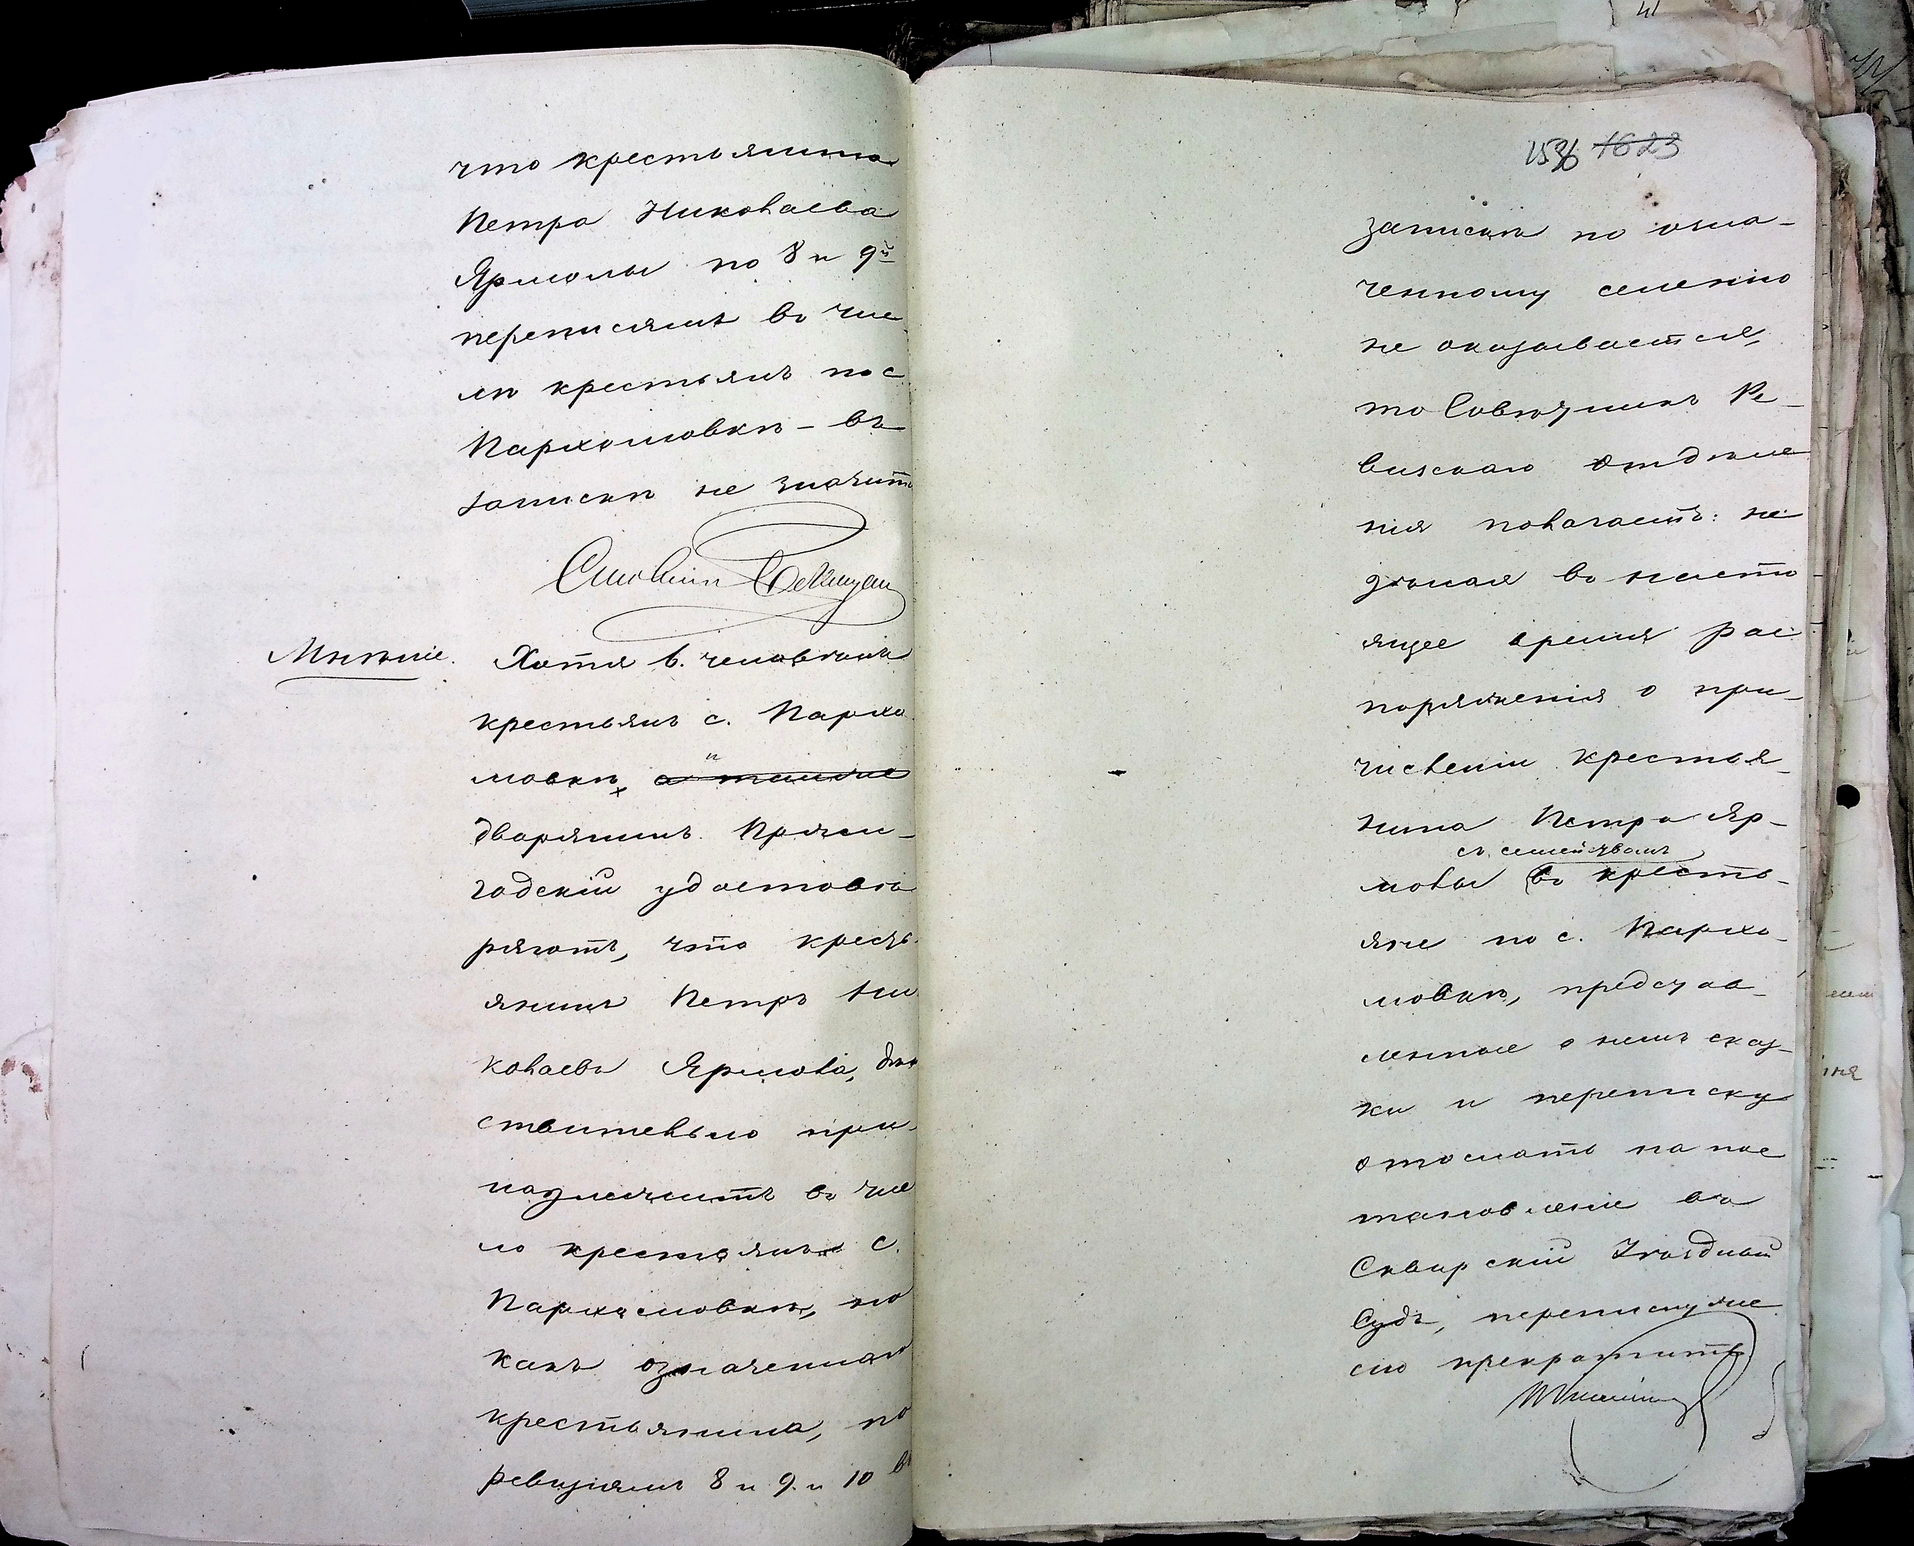 что крестьянина
Петра Николаева
Ярмолы по 8 и 9й
переписямъ въ чис
лѣ крестьянъ по с
Пархомовкѣ - въ
запискѣ не значит
Мнѣніе.
Хотя 6. человѣкъ
крестьянъ с. Пархо
мовкѣ, и а также
дворянинъ
годскій удостовѣ
ряютъ, что кресть
янинъ Петръ Ни
колаевъ Ярмола, дѣй
ствительно при-
надлежитъ въ чис
ло крестьянъ с.
Пархомовки, но
какъ означеннаго
крестьянина, по
ревизіямъ 8 и 9. и 10 въ
1623
запискѣ по озна-
ченному селенію
не оказывается,
то Совѣтникъ Ре-
визскаго Отдѣле
нія полагаетъ: не
дѣлая въ насто-
ящее время рас
поряженія о при-
численіи крестья-
нина Петра Яр-
съ семействомъ
молы въ кресть-
яне по с. Пархо-
мовкѣ, представ-
ленные о немъ сказ-
ки и переписку
отослать на пос
тановленіе въ
Сквирскій Уѣздный
Судъ, переписку же
сію прекратить